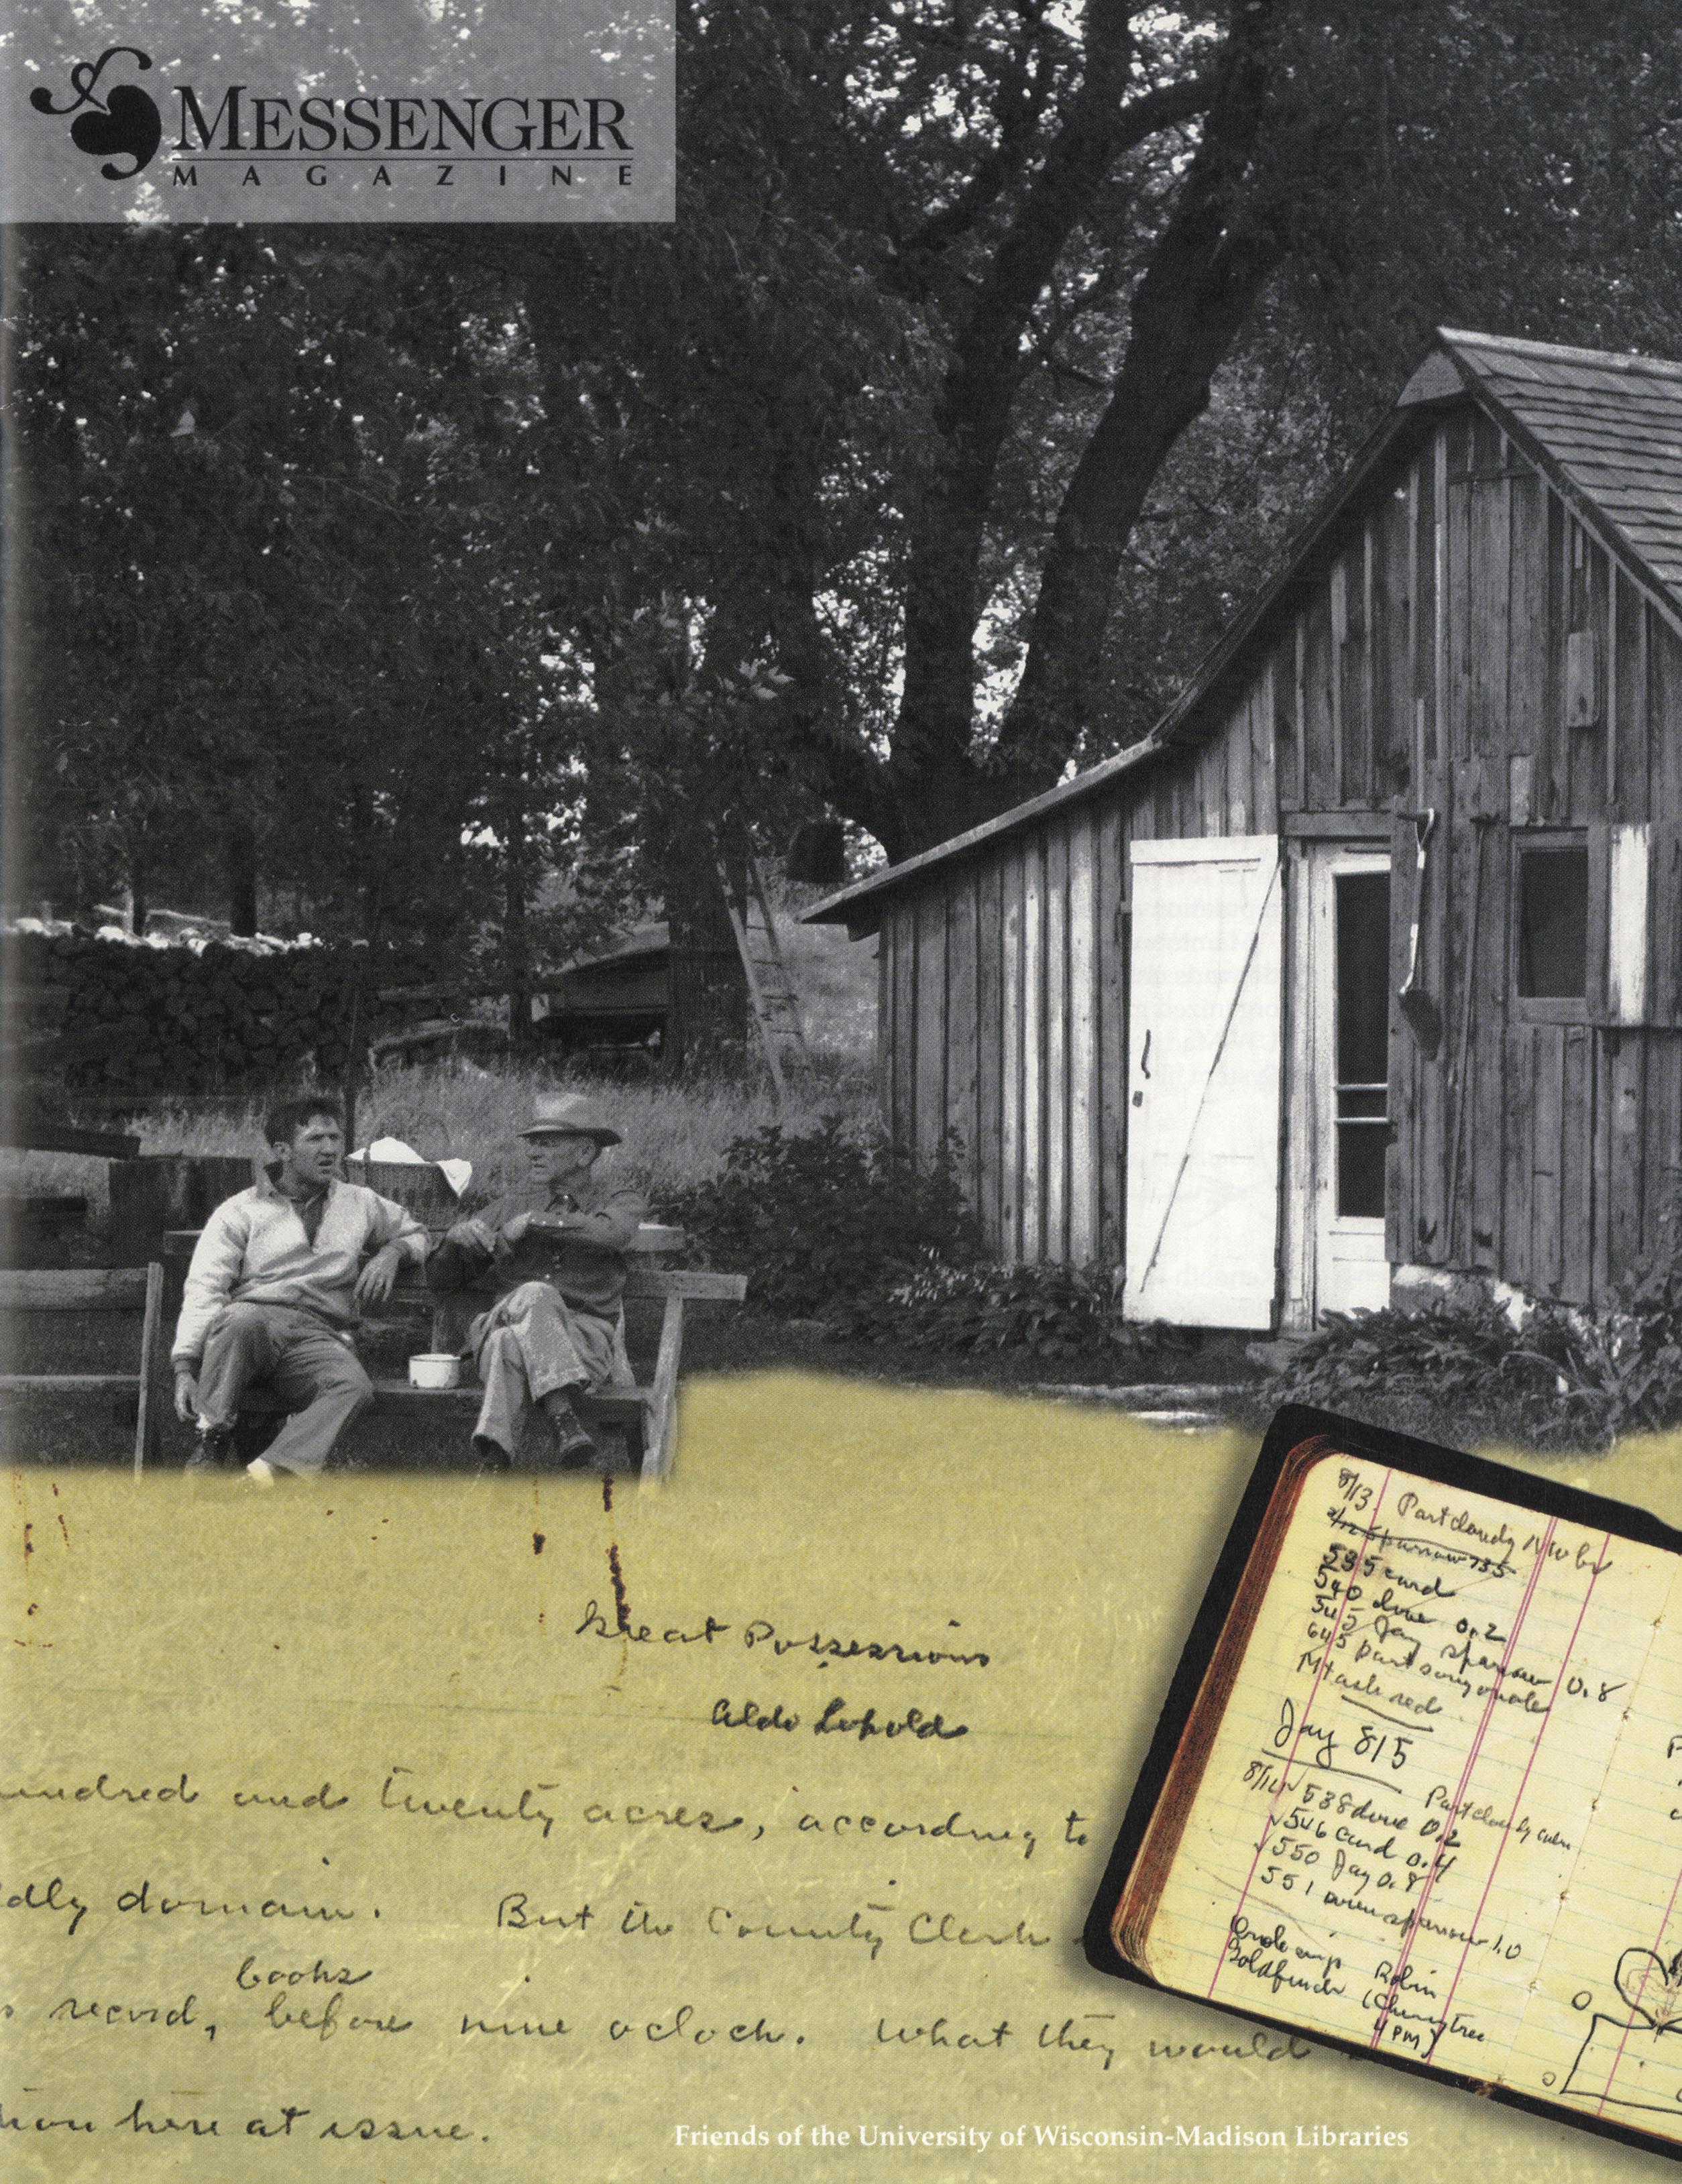 MESSENGER
MAGAZINE
Great Possessions
Aldo Leopold
hundred and twenty acres, according to
dly domain. But the County Clerk
books
record, before nine oclock. What they would
here at issue.
8/13. Part cloudy NW
sparrow
535 card
540 dove 0.2
545 Jay sparrow 0.8
645 part song oriole
Mt ash red
Jay 815
8/14 Part cloudy calm
538 dove 0.2
√546 card 0.4
√550 Jay 0.8
551 sparrow 1.0
Robin
Goldfinch (Cherry tree
4 PM)
Friends of the University of Wisconsin-Madison Libraries